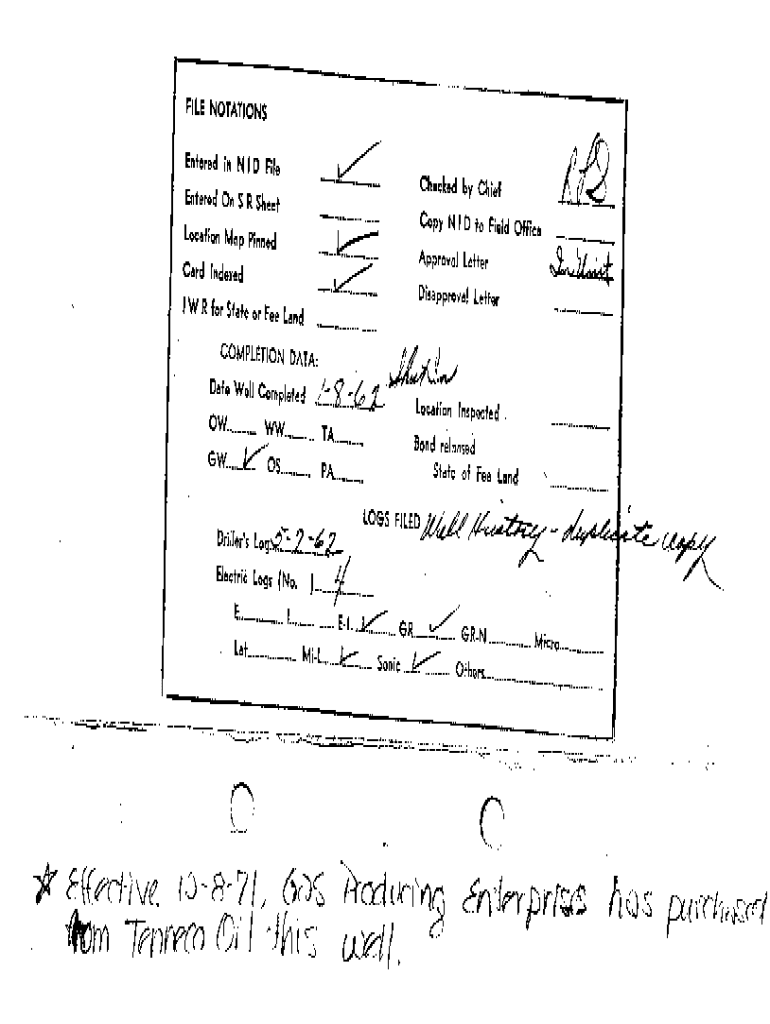 FILE NOTATIONS
Entered in NID File ✓
Checked by Chief
Entered On S R Sheet
Copy NID to Field Office
Location Map Pinned ✓
Approval Letter In Unit
Card Indexed ✓
Disapproval Letter
IWR for State or Fee Land
COMPLETION DATA:
Date Well Completed 1-8-62 Shut in
Location Inspected
OW WW TA
Bond released
GW ✓ OS PA
State of Fee Land
LOGS FILED Well History - duplicate copy
Driller's Log 5-2-62
Electric Logs (No. ) 4
E I E-I ✓ GR ✓ GR-N Micro
Lat Mi-L ✓ Sonic ✓ Others
* Effective 10-8-71, Gas Producing Enterprises has purchased
from Tenneco Oil this well.